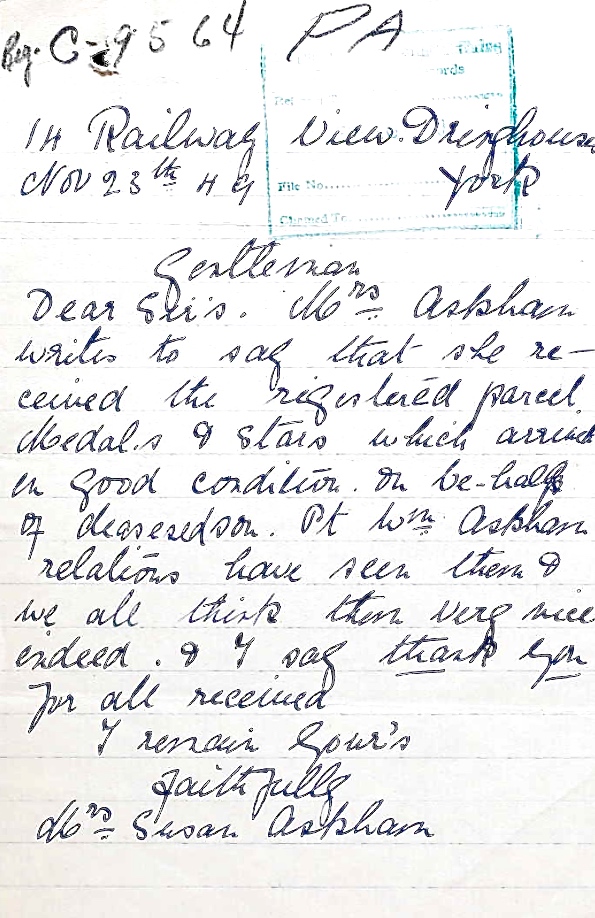 Reg. C-9564 PA
Records
14 Railway View. Dringhouses
Nov 23th 49 York
File No.
Charged To
Gentleman
Dear Sir's. Mrs Askham
writes to say that she re-
ceived the rigistered parcel
Medals & Stars which arrived
in good condition. on be-half
of deasesedson. Pt Wm Askham
relations have seen them &
we all think them very nice
indeed. & I say thank you
for all received
I remain Your's
faithfully
Mrs Susan Askham